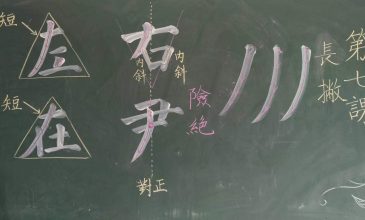 第七課
長撇
右
內斜
內斜
尹
險絕
對正
短
左
短
在